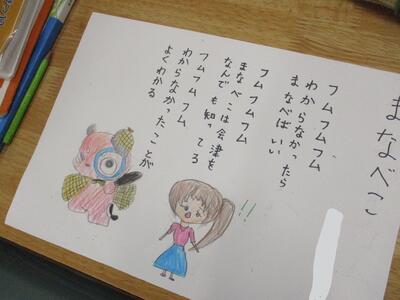 まなべこ
フムフムフム
わからなかったら
まなべばいい
フムフムフム
まなべこは会津を
なんでも知ってる
フムフムフム
わからなかったことが
よくわかる
!!